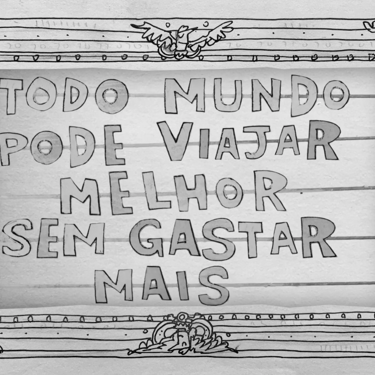 TODO MUNDO
PODE VIAJAR
MELHOR
SEM GASTAR
MAIS